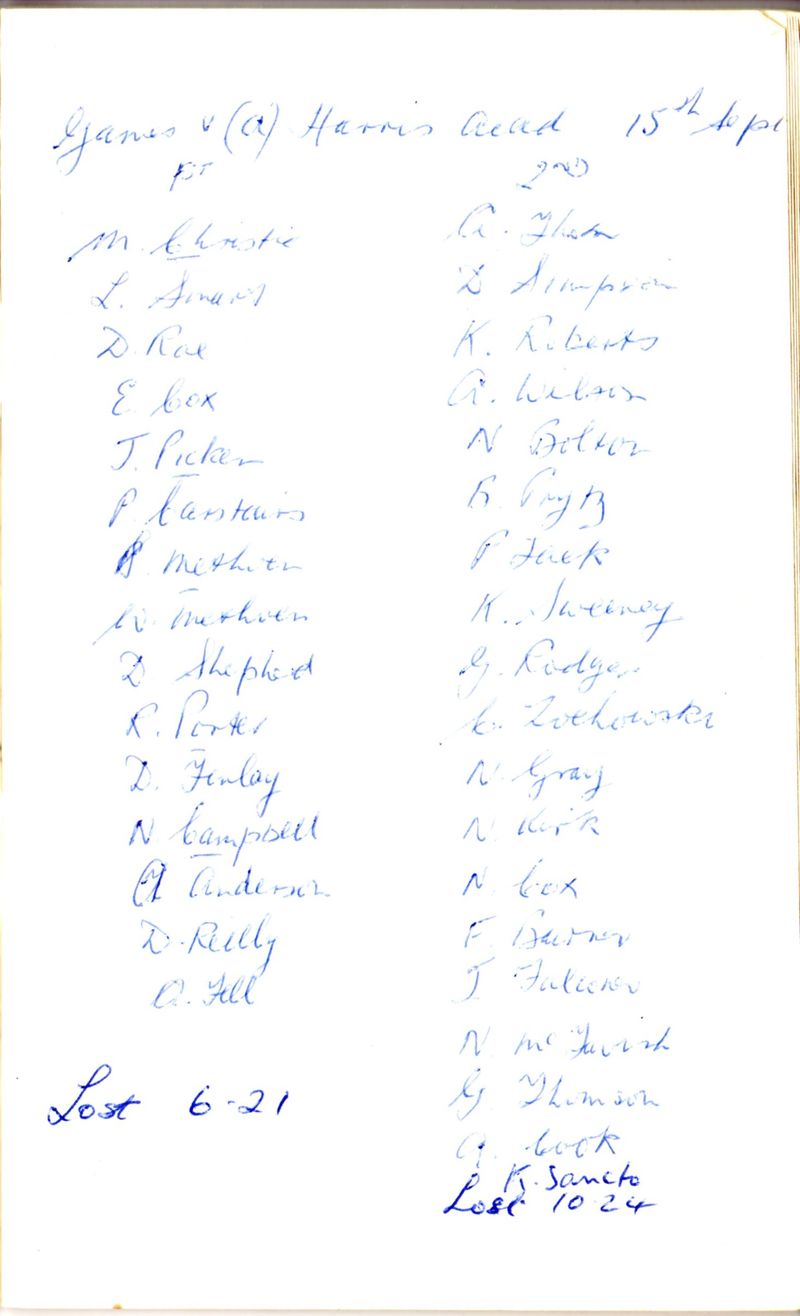 Games v (a) Harris Acad 15th Sept
1ST
M. Christie
L. Smart
D. Rae
E. Cox
J. Picken
P. Carstairs
B. Methven
W. Methven
D. Shepherd
R. Porter
D. Finlay
N. Campbell
A Anderson
D. Reilly
A. Fell
Lost 6-21
2ND
A. Thom
D Simpson
K. Roberts
A. Wilson
N Bolton
R. Prytz
P Jack
K. Sweeney
G. Rodger
C. Zochowski
N. Gray
N Kirk
N. Cox
F.
J Falconer
N. McTavish
G Thomson
A. Cook
K. Sancto
Lost 10-24